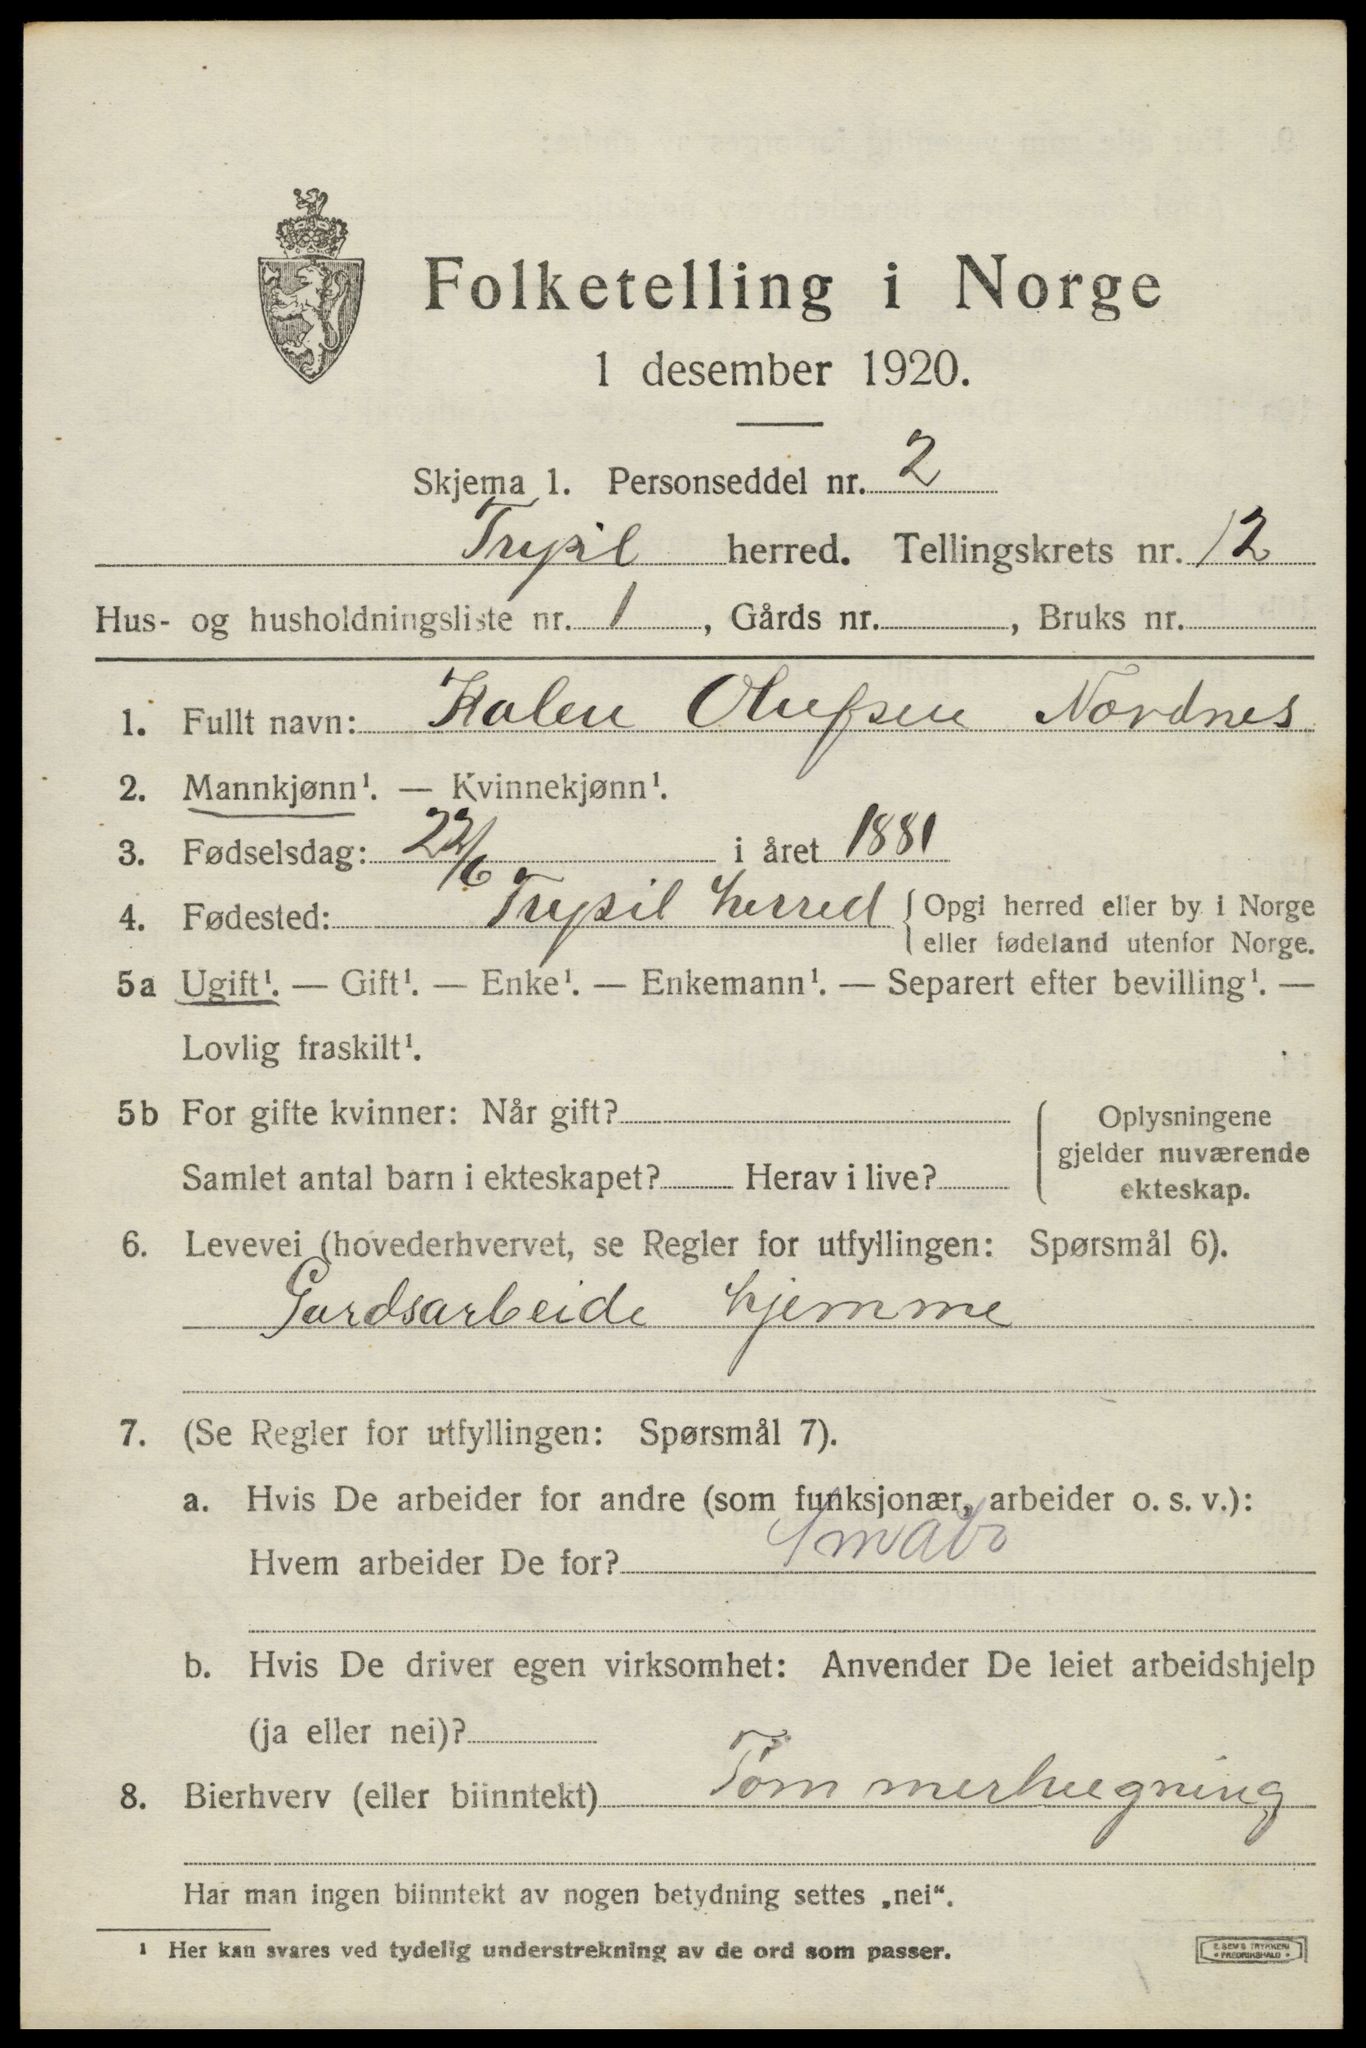 Folketelling i Norge
1 desember 1920.
Skjema 1. Personseddel nr. 2
Trysil herred. Tellingskrets nr. 12
Hus- og husholdningsliste nr. 1, Gårds nr. , Bruks nr.
1. Fullt navn: Halen Olufsen Nordnes
2. Mannkjønn¹. — Kvinnekjønn¹.
3. Fødselsdag: 22/6 i året 1881
4. Fødested: Trysil herred { Opgi herred eller by i Norge
eller fødeland utenfor Norge.
5a Ugift¹. — Gift¹. — Enke¹. — Enkemann¹. — Separert efter bevilling¹. —
Lovlig fraskilt¹.
5b For gifte kvinner: Når gift?
Samlet antal barn i ekteskapet? Herav i live?
Oplysningene
gjelder nuværende
ekteskap.
6. Levevei (hovederhvervet, se Regler for utfyllingen: Spørsmål 6).
Gardsarbeide hjemme
7. (Se Regler for utfyllingen: Spørsmål 7).
a. Hvis De arbeider for andre (som funksjonær, arbeider o. s. v.):
Hvem arbeider De for?
b. Hvis De driver egen virksomhet: Anvender De leiet arbeidshjelp
(ja eller nei)?
8. Bierhverv (eller biinntekt) Tømmerhugning
Har man ingen biinntekt av nogen betydning settes „nei“.
¹ Her kan svares ved tydelig understrekning av de ord som passer.
E. SEM'S TRYKKERI
FREDRIKSHALD